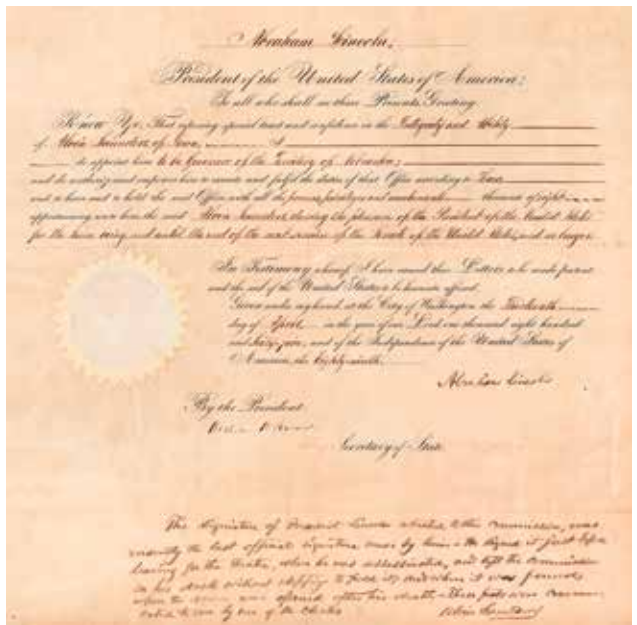 Abraham Lincoln,
President of the United States of America;
To all who shall see these Presents, Greeting.
Know Ye, That reposing special trust and confidence in the Integrity and Ability
of Alvin Saunders of Iowa, I
do appoint him to be Governor of the Territory of Nebraska;
and do authorize and empower him to execute and fulfil the duties of that Office according to Law
and to have and to hold the said Office with all the powers, privileges and emoluments thereunto of right
appertaining unto him the said Alvin Saunders during the pleasure of the President of the United States
for the time being, and until the end of the next session of the Senate of the United States, and no longer.
In Testimony whereof, I have caused these Letters to be made patent
and the seal of the United States to be hereunto affixed.
Given under my hand, at the City of Washington the
day of April in the year of our Lord one thousand eight hundred
and sixty five, and of the Independence of the United States of
America, the Eighty ninth.
Abraham Lincoln
By the President
Secretary of State
The signature of President Lincoln attached to this Commission, was
the last official signature made by him He signed it just before
leaving for the Theatre, where he was assassinated, and left the Commission
in his desk without stopping to fold it, and where it was found
when the was opened after his death These facts were
to me by one of the Clerks
Alvin Saunders